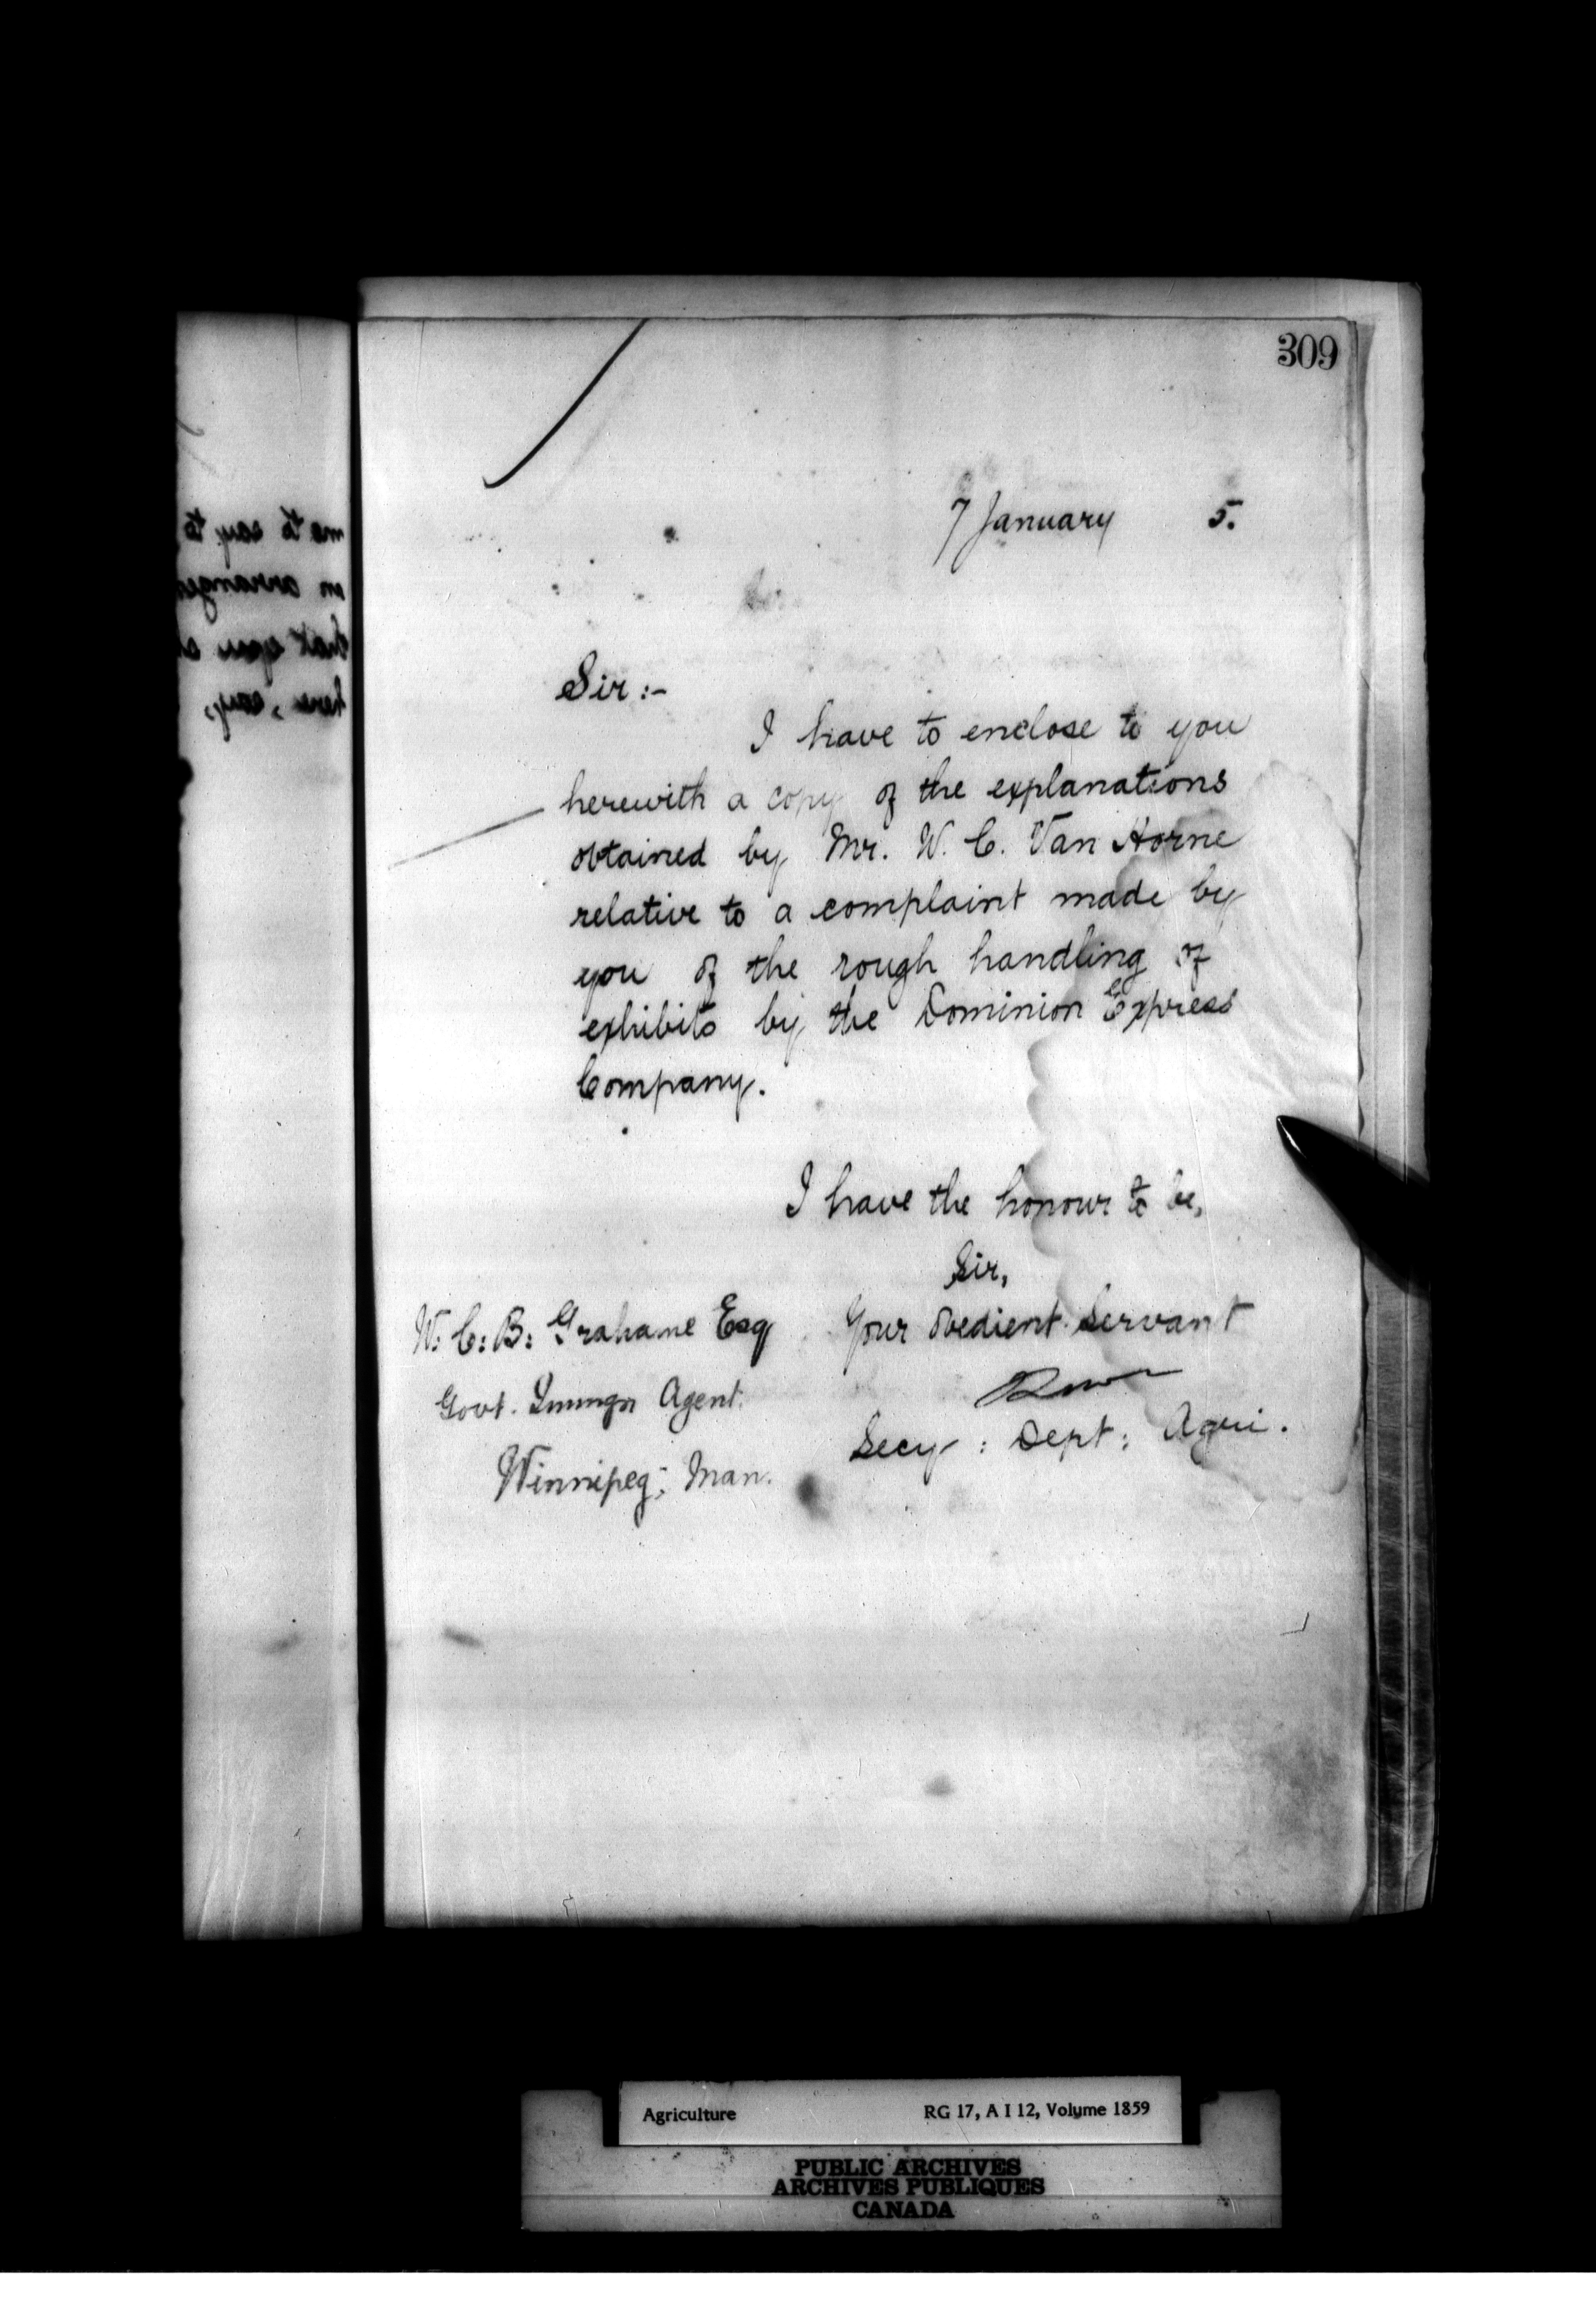 309
7 January 5.
Sir:-
I have to enclose to you
herewith a copy of the explanations
obtained by Mr. W. C. Van Horne
relative to a complaint made by
you of the rough handling of
exhibits by the Dominion Express
Company.
I have the honour to be,
Sir,
Your obedient Servant
Secy: Dept: Agri.
W: C: B: Grahame Esq
Govt. Immgn Agent.
Winnipeg; Man.
me to say to
that you
here, say,
Agriculture RG 17, A I 12, Volume 1859
PUBLIC ARCHIVES
ARCHIVES PUBLIQUES
CANADA